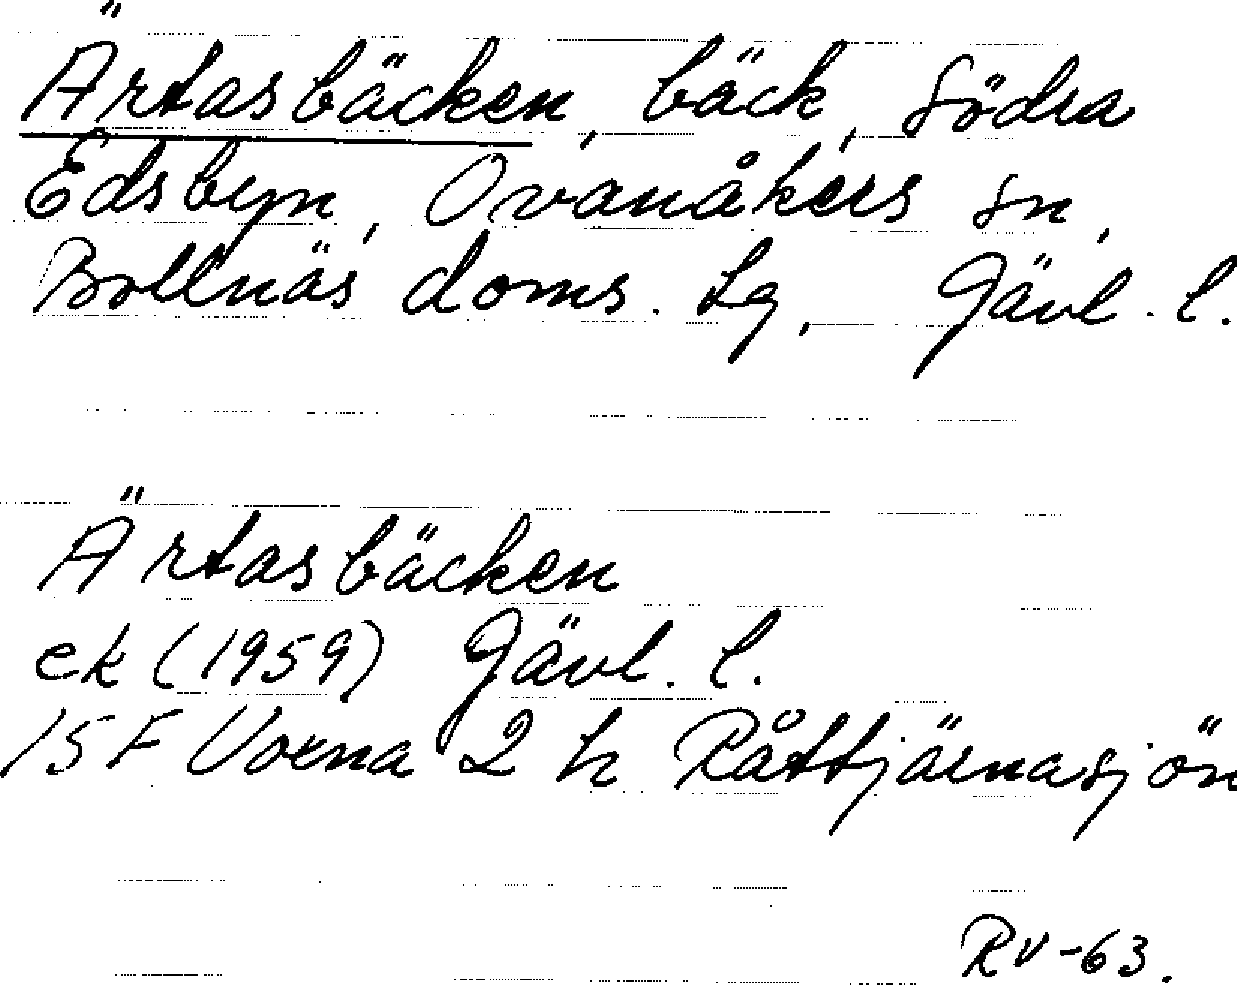 Ärtasbäcken, bäck, Södra
Edsbyn, Ovanåkers sn,
Bollnäs doms. Lg, Gävl. l.
Ärtasbäcken
ek (1959) Gävl. l.
15F Voxna 2 h Råttjärnasjön
RV-63.